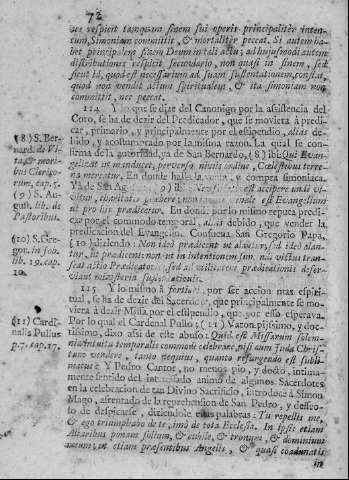 72
ues respicit tanquam finem sui operis principaliter inten-
tum, Simoniam committit, & mortaliter peccat. Si autem ha-
bet principalem finem Deum in tali actu; ad hujusmodi autem
distributiones respicit secundario, non quasi in finem, sed
sicut id, quod est necessarium ad suam sustentationem, constat,
quod non vendit actum spiritualem, & ita simoniam non
committit, nec peccat.
114 Y lo que se dize del Canonigo por la assistencia del
Coro, se ha de dezir del Predicador, que se moviera à predi-
car, primario, y principalmente por el estipendio, alias de-
bido, y acostumbrado por la misma razon. La qual se con-
firma de la autoridad, ya de San Bernardo, (8) ibi: Qui Evan-
gelizat ut manducet, perverso nimis ordine, Coelestibus terre-
na mercatur. En donde halla la y compra simoniaca.
Ya de San Ag (9) ibi: est accipere undè vi-
vitur, charitatis est præbere: non est Evangelium
ut pro his prædicetur. En donde por lo mismo reputa predi-
car por el comodo temporal, alias debido, que vender la
predicacion del Evangelio. Confirma San Gregorio Papa,
(10) diziendo: Non ideò prædicent ut alantur, sed ideò alan-
tur, ut prædicent: non ut in intentionem suam victus tran-
seat actio Prædicatoris, sed ad utilitatem prædicationis deser-
viant ministeria sustentationis.
115 Y lo mismo à fortiori, por ser accion mas espiri-
tual, se ha de dezir del Sacerdote, que principalmente se mo-
viera à dezir Missa por el estipendio, que por esso esperava.
Por lo qual el Cardenal Pullo; (11) Varon pijssimo, y doc-
tissimo, dixo assi de este abuso: Quid est Missarum solem-
nia intuitu temporalis commodi celebrare, nisi cum Juda Chris-
tum vendere, tanto nequius, quanto resurgendo est subli-
matus? Y Pedro Cantor, no menos pio, y docto, intima-
mente sentido del interesado animo de algunos Sacerdotes
en la celebracion de tan Divino Sacrificio, introduce à Simon
Mago, afrentado de la reprehension de San Pedro, y desseo-
so de despicarse, diziendole estas palabras: Tu repellis me,
& ego triumphabo de te, imò de tota Ecclesia. In ipsis etiam
Altaribus ponam solium, & cubile, & tronum, & dominium
meum; ut etiam præsentibus Angelis, & quasi coadunatis
in
(8) S. Ber-
nard. de Vi-
ta, & mori-
bus Clerico-
rum, cap. 5.
(9) S. Au-
gust. lib. de
Pastoribus.
(10) S. Gre-
gor. in Job.
lib. 19. cap.
10.
(11) Cardi-
nalis Pullus.
p. 7. cap. 17.